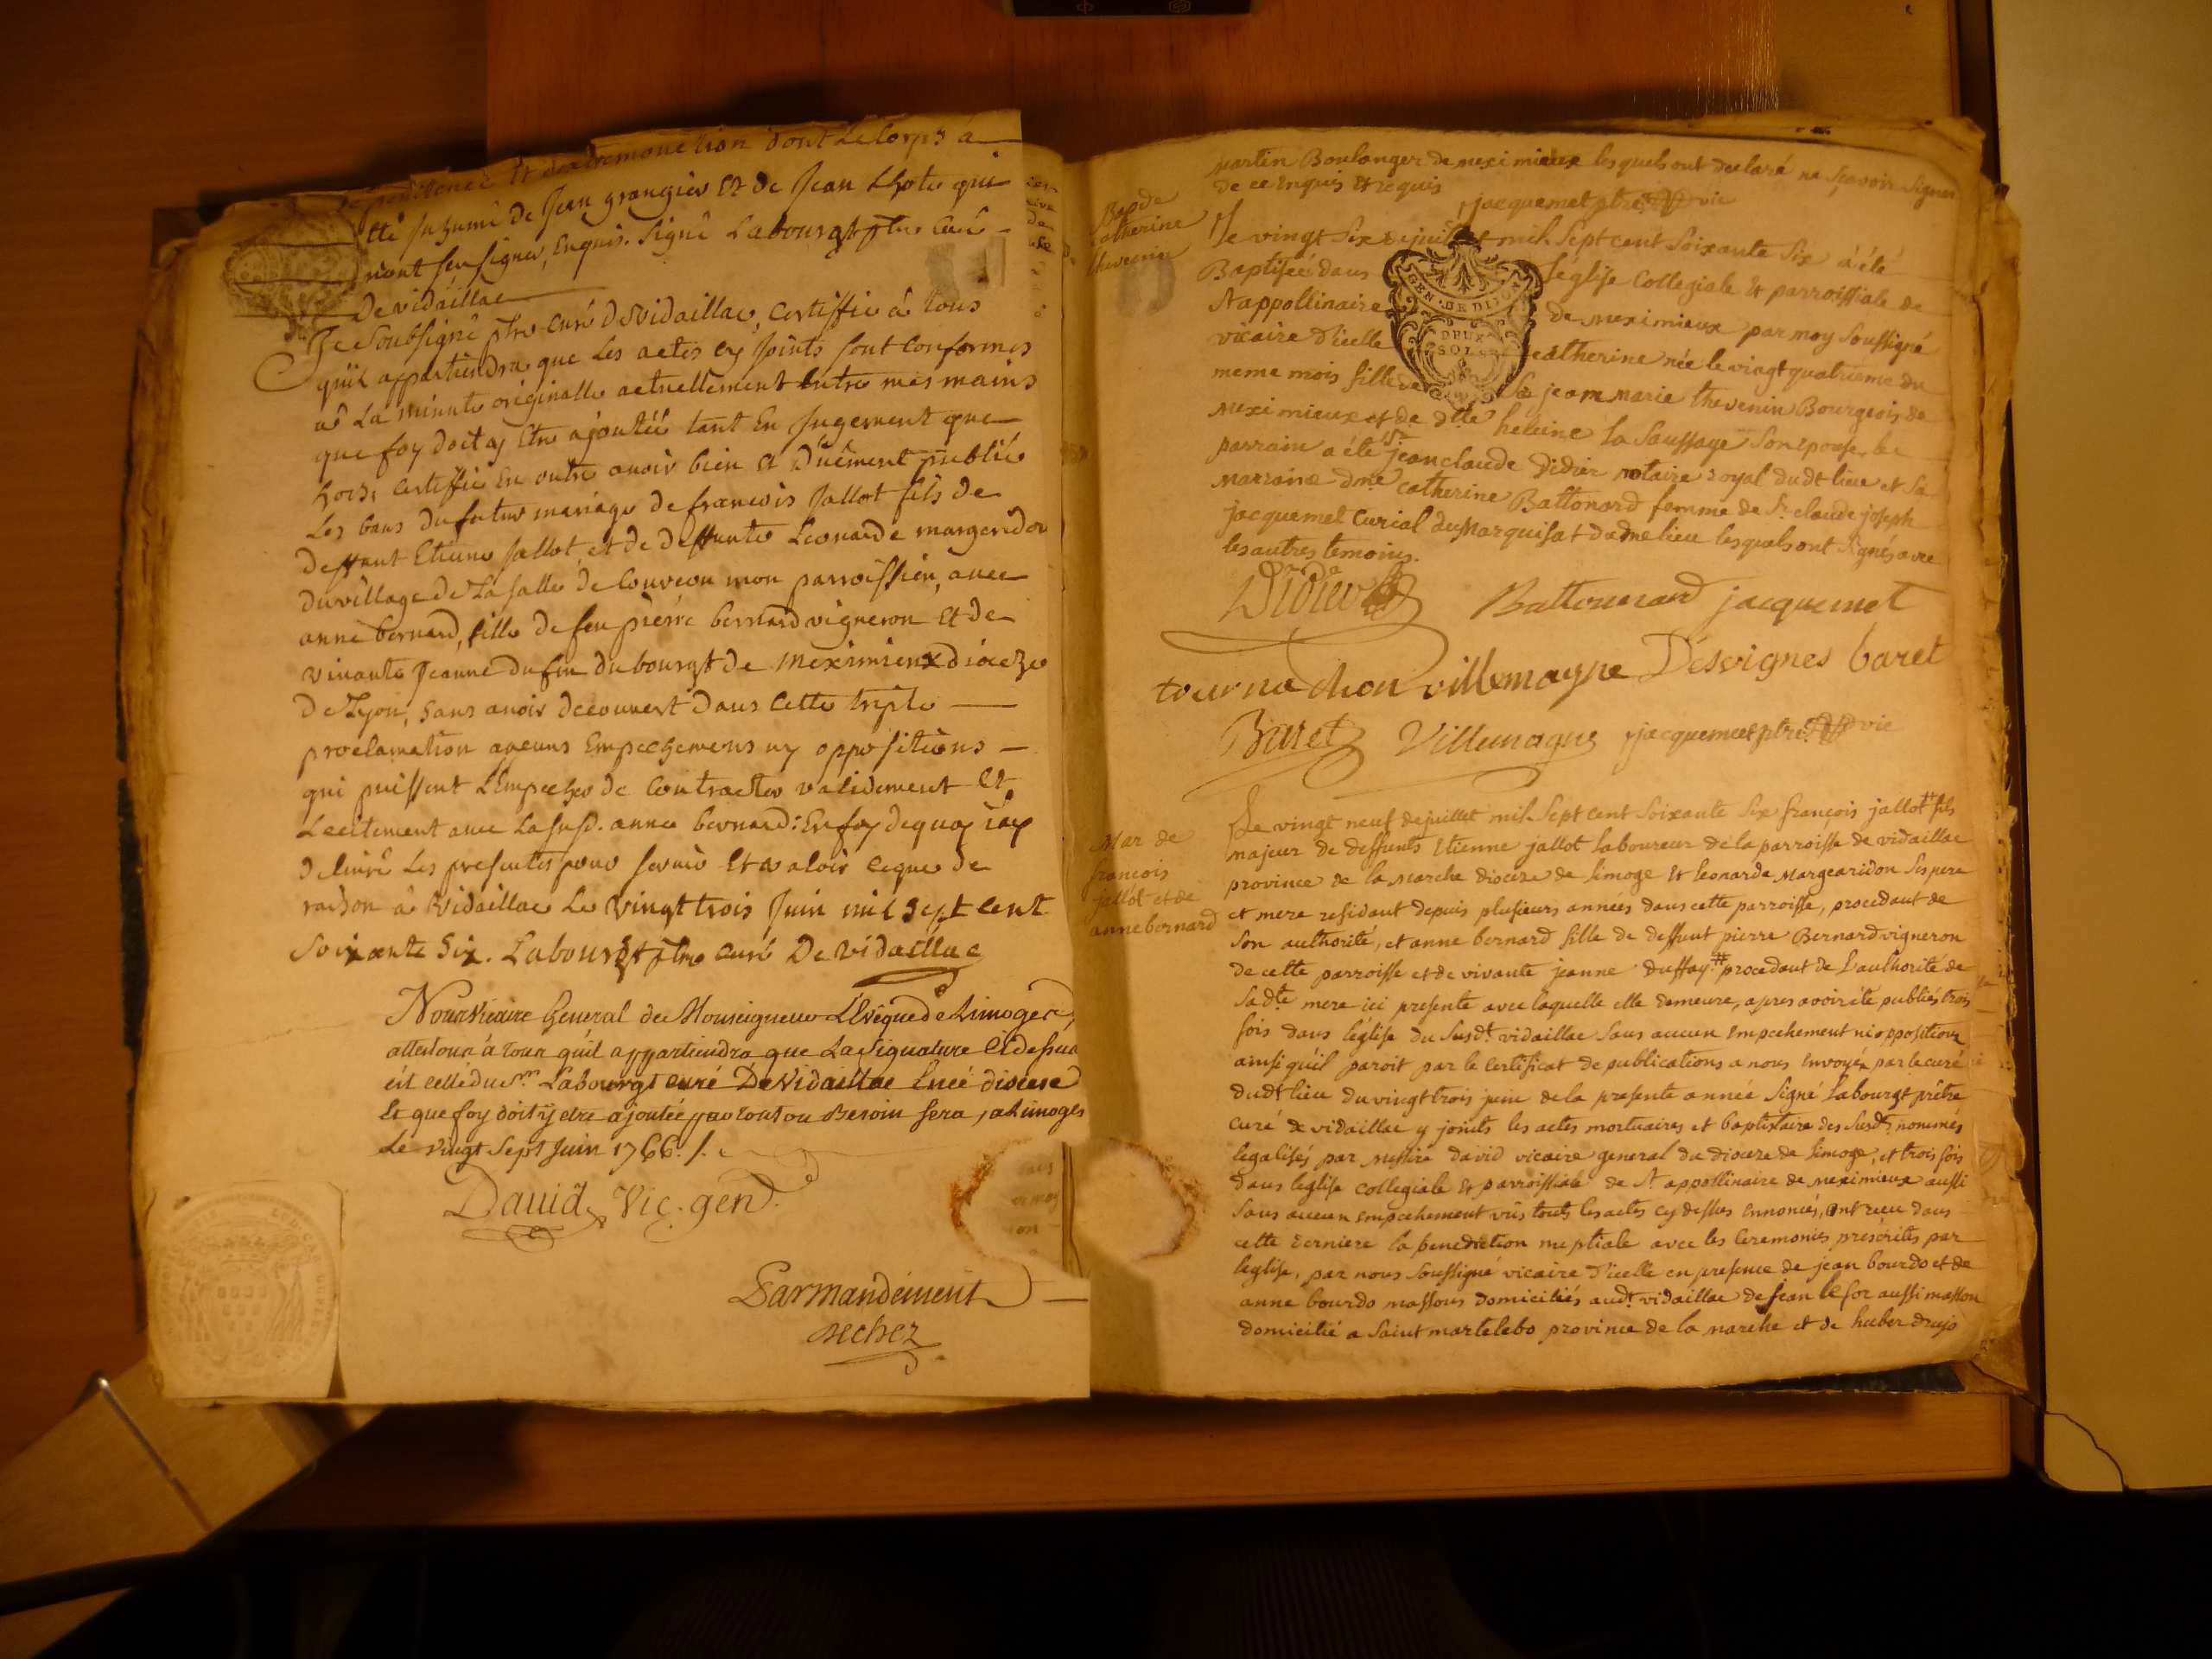 penitence et dextremonction dont Le Corps à
été Inhumé de Jean grangier Et de Jean Lhote qui
n'ont sçu signer, Enquis. Signé Labourgt ptre Curé
De vidaillac
Je Soubsigné ptre curé De vidaillac, certiffie à tous
qu'il appartiendra que Les actes cy Joints sont conformes
à La minute originalle actuellement Entre mes mains
que foy doit y Etre ajoutée tant En Jugement que
hors, certiffie En outre avoir bien et Duëment publié
Les bans du futur mariage de francois Jallot fils de
deffunt Etienne Jallot, et de deffunte Leonarde margeridon
Du village de La Salle de Couveou mon parroissien, avec
anne bernard, fille de feu pierre bernard vigneron et de
vivante Jeanne Dufeu du bourgt de Meximieux diocèze
De Lyon, sans avoir decouvert dans cette triple
proclamation aucuns Empechemens ny oppositions
qui puissent L'Empecher de Contracter validement et
Licitement avec La susd. anne bernard: En foy de quoy J'ay
delivré Les presentes pour servir Et valoir ce que de
raison à Vidaillac Le vingt trois Juin mil sept cent
soixante Six. Labourgt ptre curé De Vidaillac
Nous Vicaire General de Monseigneur L'Evêque de Limoges,
attestons à tous qu'il appartiendra que La Signature Cidessus
est celle du Sr. Labourgt curé De Vidaillac en ce diocese
Et que foy doit y etre ajoutée par tout ou Besoin sera, a Limoges
Le vingt Sept Juin 1766./.
David, Vic. gen.
Par Mandement
Bechez
martin Boulanger de meximieux lesquels ont declaré ne sçavoir signer
de ce enquis et requis
jacquemet ptre vic
Bap de
Catherine
thevenin
Le vingt Six de juillet mil Sept cent Soixante Six à été
Baptisée dans l'église Collegiale et parroissiale de
St appollinaire de meximieux par moy soussigné
vicaire d'icelle catherine née le vingt quatrieme du
meme mois fille de Sr jean marie thevenin Bourgeois de
meximieux et de dlle heleine la Saussaye son epouse, le
parrain a été Sr. jean claude Didier notaire royal dudt lieu et sa
marraine dme. catherine Battonard femme de Sr. claude joseph
jacquemet Curial du Marquisat dudit lieu lesquels ont signés avec
les autres temoins.
Didier Battonnard jacquemet
tournachon villemagne Désvignes baret
Baret Villemagne jacquemet ptre. vic
Mar de
francois
jallot et de
anne bernard
Le vingt neuf de juillet mil Sept cent Soixante Six françois jallot # fils
majeur de deffunts Etienne jallot laboureur de la parroisse de vidaillac
province de la Marche dioceze de limoge et leonarde Margearidon ses pere
et mere residant depuis plusieurs années dans cette parroisse, procedant de
son authorité, et anne bernard fille de deffunt pierre Bernard vigneron
de cette parroisse et de vivante jeanne duffay # procedant de L'authorité de
sa dte mere ici presente avec laquelle elle demeure, apres avoir été publiés trois
fois dans l'église du susdt. vidaillac sans aucun empechement ni opposition
ainsi qu'il paroit par le certificat de publications a nous envoyé par le curé
dudt lieu du vingt trois juin de la presente année signé Labourgt prêtre
curé de vidaillac y joints les actes mortuaires et baptistaire des susdts. nommés
legalisés par messire david vicaire general du diocese de limoge, et trois fois
dans l'eglise collegiale et parroissiale de St appollinaire de meximieux aussi
sans aucun empechement vûs touts les actes cy dessus ennoncés, ont reçu dans
cette derniere la benediction nuptiale avec les ceremonies prescrites par
l'eglise, par nous soussigné vicaire d'icelle en presence de jean bourdo et de
anne bourdo massons domiciliés audt. vidaillac de jean le for aussi masson
domicilié a Saint martelebo province de la marche et de huber drujo
GEN. DE DIJON
DEUX
SOLS